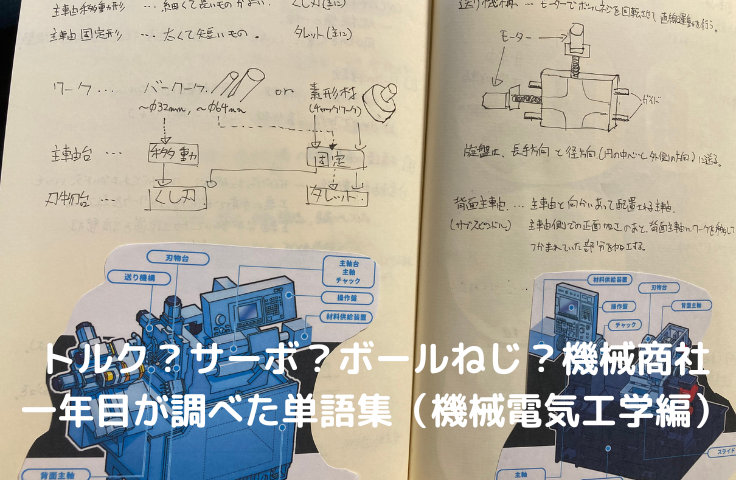 主軸移動形 …細くて長いものがよい。 くし刃(主に)
主軸固定形 …太くて短いもの。 タレット(主に)
ワーク … バーワーク or 素形材
～φ32mm, ～φ64mm (チャックワーク)
主軸台 … 移動 固定
刃物台 … くし刃 タレット
刃物台
送り機構
主軸台
主軸
チャック
操作盤
材料供給装置
背面主軸
送り機構 … モーターでボールネジを回転させて直線運動を行う。
モーター
ガイド
旋盤は、長手方向と径方向(円の中心と外側の方向)に送る。
背面主軸 … 主軸と向かいあって配置される主軸。
主軸側での正面加工のあと、背面主軸にワークを
つかまれていた部分を加工する。
材料供給装置
刃物台
操作盤
背面主軸
チャック
スライド
主軸
トルク?サーボ?ボールねじ?機械商社
一年目が調べた単語集(機械電気工学編)